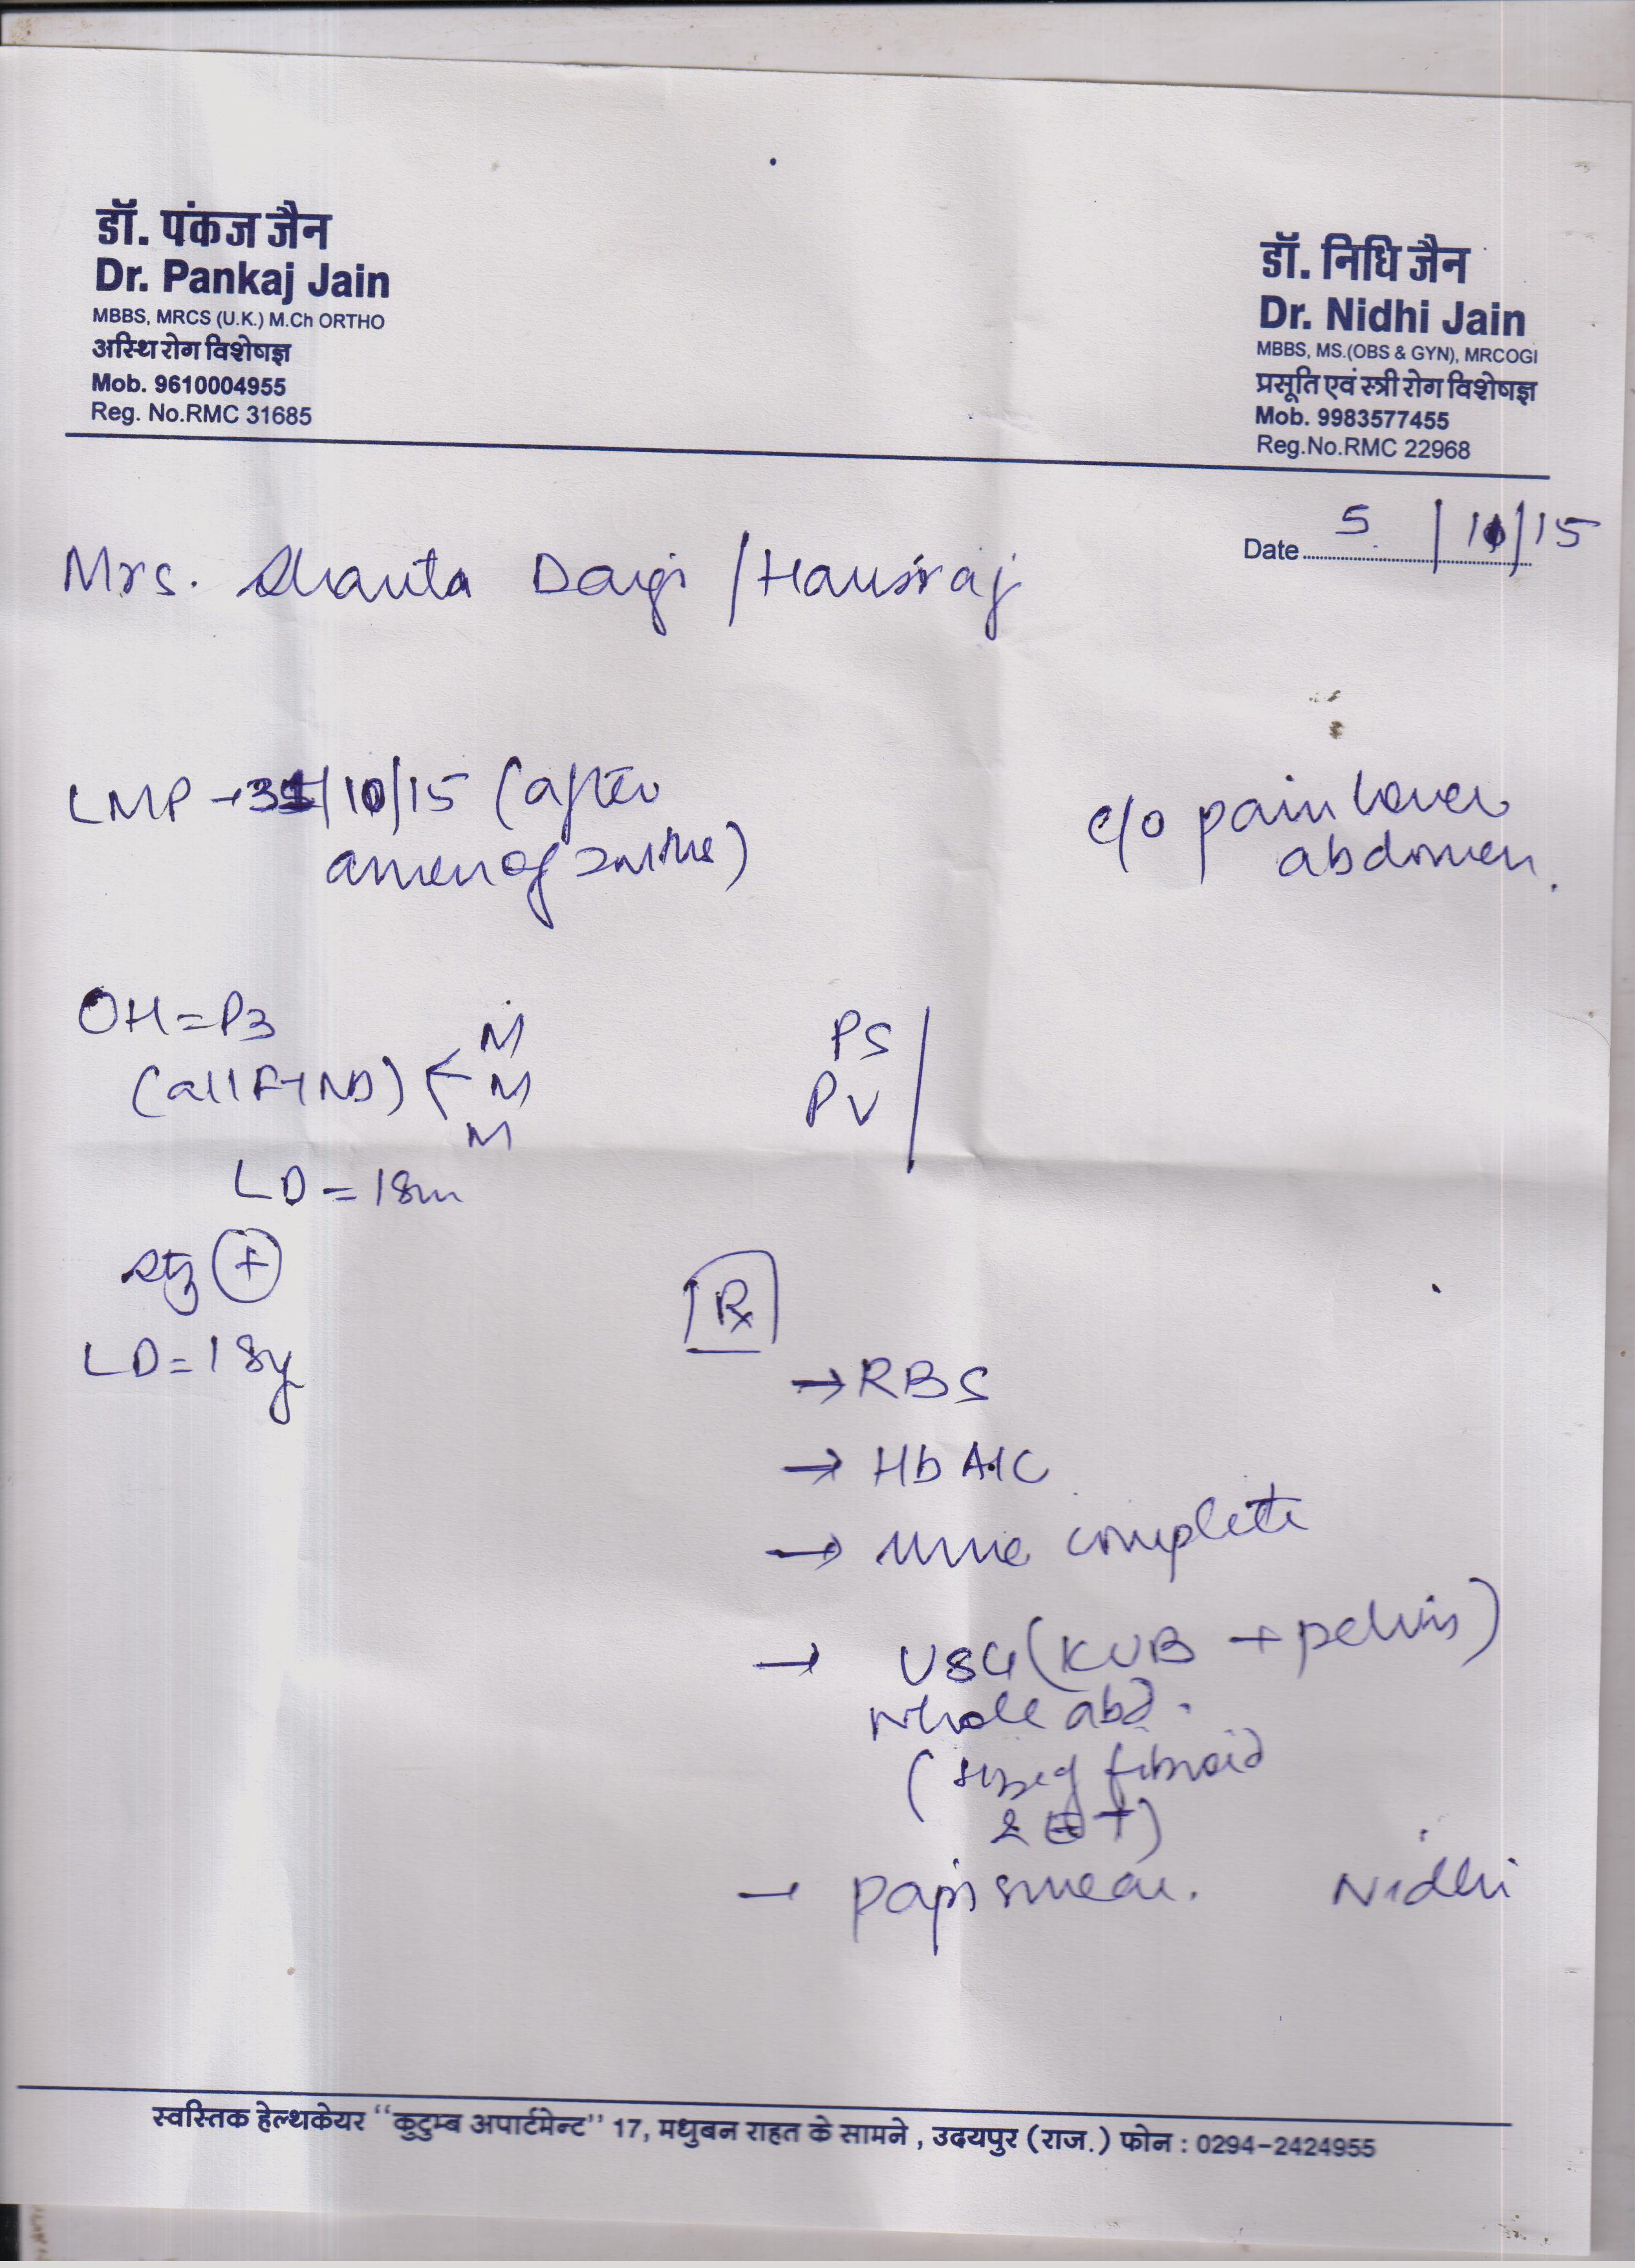 डॉ. पंकज जैन
Dr. Pankaj Jain
MBBS, MRCS (U.K.) M.Ch ORTHO
अस्थि रोग विशेषज्ञ
Mob. 9610004955
Reg. No.RMC 31685
डॉ. निधि जैन
Dr. Nidhi Jain
MBBS, MS.(OBS & GYN), MRCOGI
प्रसूति एवं स्त्री रोग विशेषज्ञ
Mob. 9983577455
Reg.No.RMC 22968
Date 5 / 11/15
Mrs. Shanta / Hansraj
LMP → 31/10/15 (after
amen of 2mths)
c/o pain lower
abdomen.
OH = P3
(all FTND) < M
M
M
LD = 18m
PS
PV
⊕
LD = 18y
Rx
→ RBS
→ HbA1C
→ urine complete
→ USG (KUB + pelvis)
whole abd.
(size of fibroid
& ET)
→ pap smear.
Nidhi
स्वस्तिक हेल्थकेयर ‘‘कुटुम्ब अपार्टमेन्ट’’ 17, मधुबन राहत के सामने , उदयपुर (राज.) फोन : 0294-2424955